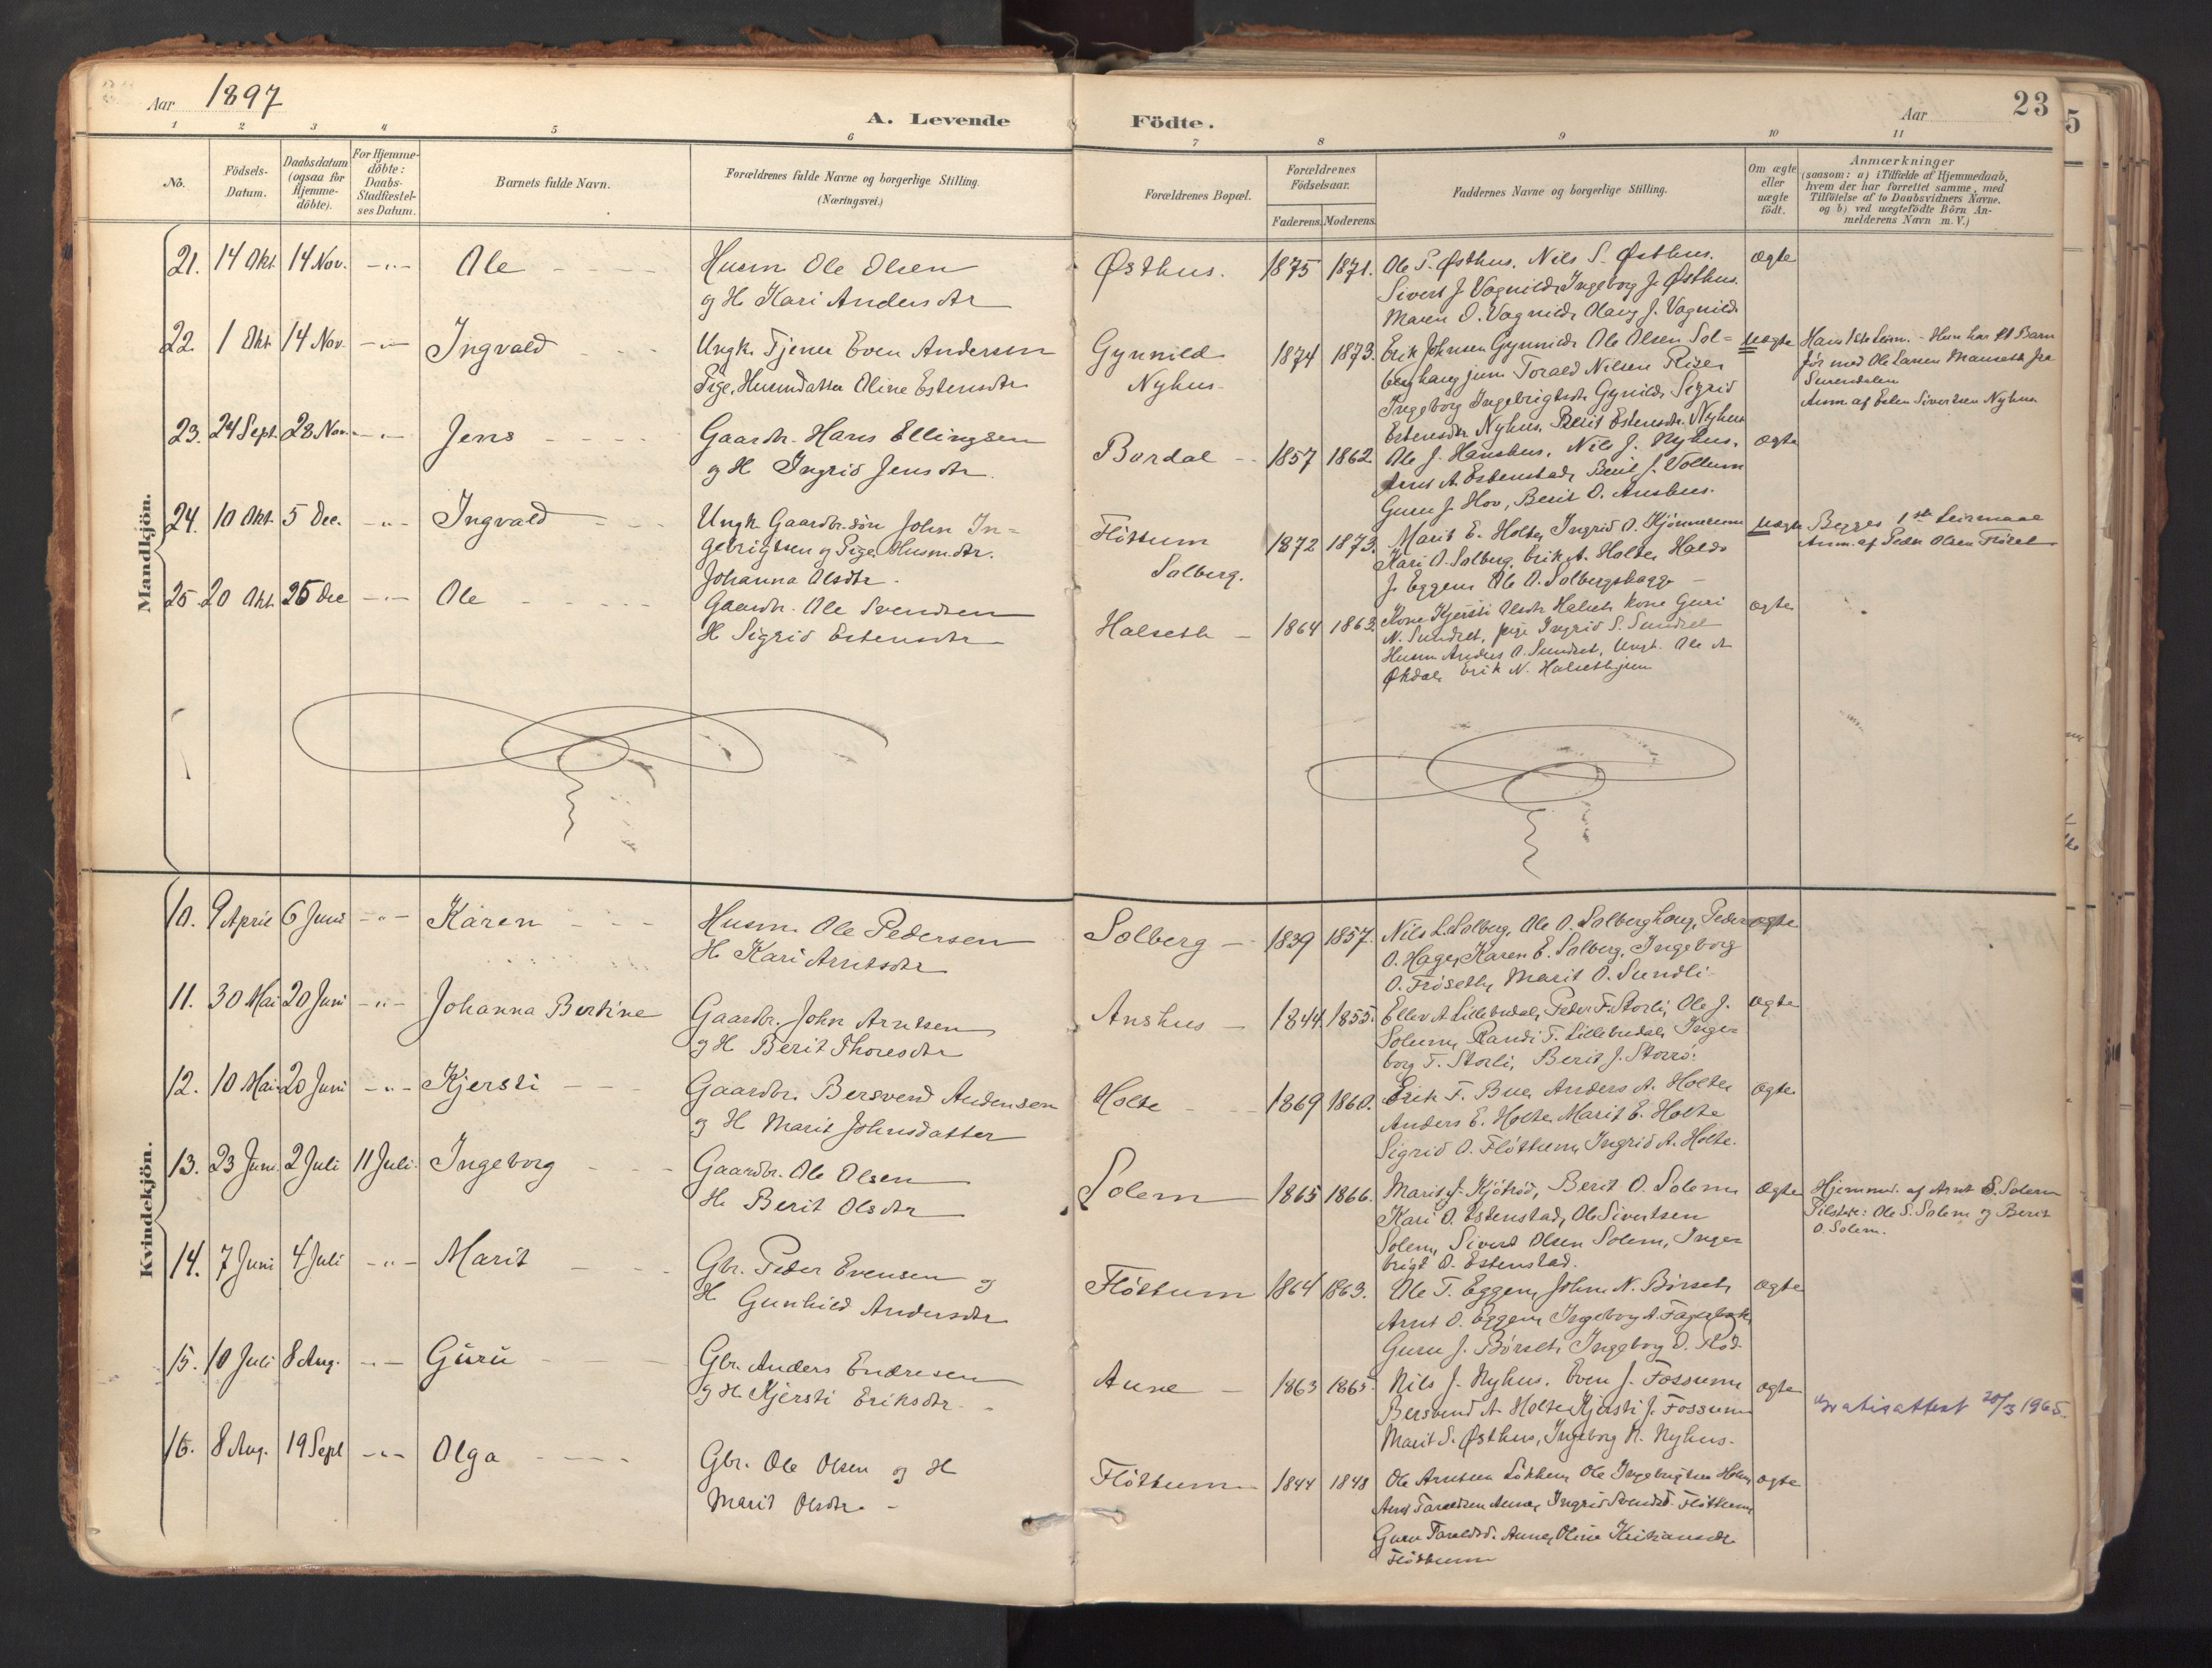 Aar 1897
A. Levende Födte.
Aar
23
1 2 3 4 5 6 7 8 9 10 11
No.
Födsels-Datum.
Daabsdatum (ogsaa for Hjemme-döbte).
For Hjemme-döbte: Daabs-Stadfæstel-ses Datum.
Barnets fulde Navn.
Forældrenes fulde Navne og borgerlige Stilling. (Næringsvei.)
Forældrenes Bopæl.
Forældrenes Födselsaar.
Faderens. Moderens.
Faddernes Navne og borgerlige Stilling.
Om ægte eller uægte födt.
Anmærkninger
(saasom: a) i Tilfælde af Hjemmedaab,
hvem der har forrettet samme, med
Tilföielse af to Daabsvidners Navne.
og b) ved uægtefödte Börn An-
melderens Navn m. V.)
Mandkjön.
21. 14 Okt. 14 Nov. -"- Ole
Husm. Ole Olsen
og H. Kari Andersdtr
Østhus. 1875 1871.
Ole S. Østhus, Nils S. Østhus.
Sivert J. Vognild, Ingeborg J. Østhus.
Maren O. Vognild, Marg J. Vognild
ægte
22. 1 Okt. 14 Nov. -"- Ingvald
Ungk. Tjener Even Andersen
Pige, Husmdatter Oline Estensdtr
Gynnild
Nyhus
1874 1873.
Erik Johnsen Gynnild, Ole Olsen Sol=
berghaug jun. Torald Nilsen Risee
Ingeborg Ingebrigtsdtr Gynild, Sigrid
Estensdtr Nyhus, Berit Estensdtr. Nyhus
uægte
Hans 1ste Leierm. - Hun har et Barn
før med Ole Larsen Mauseth fra
Surendalen
Anm. af Esten Sivertsen Nyhus
23. 24 Sept. 28 Nov. -"- Jens
Gaardbr. Hans Ellingsen
og H. Ingrid Jensdtr.
Bordal 1857 1862
Ole J. Hanshus, Nils J. Nyhus,
Arnt A. Estenstad, Berit J. Vollum
Guru J. Hov, Berit O. Anshus.
ægte
24. 10 Okt. 5 Dec. -"- Ingvald
Ungk. Gaardbr.søn John In=
gebrigtsen og Pige, Husm.dtr.
Johanna Olsdtr.
Flöttum
Solberg.
1872 1873.
Marit E. Holte, Ingrid O.
Kari O. Solberg, Erik A. Holte, Haldo
J. Eggen, Ole O. Solbergshagge
uægte
Begges 1ste Leiermaal
Anm. af Peder Olsen
25. 20 Okt. 25 Dec -"- Ole
Gaardbr. Ole Svendsen
H. Sigrid Estensdtr
Halseth 1864 1863.
Kone Kjersti Olsdtr Halset, kone Guri
N. Sundset, pige Ingrid S. Sundset
Husm Anders O. Sundset, Ungk. Ole A
Økdal, Erik N. Halseth jun
ægte
Kvindekjön.
10. 9 April 6 Juni -"- Karen
Husm. Ole Pedersen
H. Kari Arntsdtr
Solberg 1839 1857.
Nils L. Solberg, Ole O. Solberghaug, Peder
O. Hage, Karen E. Solberg, Ingeborg
O. Frøseth, Marit O. Sundli
ægte
11. 30 Mai 20 Juni -"- Johanna Bertine
Gaardbr. John Arntsen
og H. Berit Thoresdtr
Anshus 1844 1855.
Ellev A. Lillebudal, Peder F. Storli, Ole J.
Solum, Randi T. Lillebudal, Inge=
borg T. Storli, Berit J. Storrø.
ægte
12. 10 Mai 20 Juni -"- Kjersti
Gaardbr. Bersvend Andersen
og H. Marit Johnsdatter
Holte 1869 1860.
Erik F. Bue, Anders A. Holte
Anders E. Holte, Marit E. Holte
Sigrid O. Flöttum, Ingrid A. Holte.
ægte
13. 23 Juni 2 Juli 11 Juli. Ingeborg
Gaardbr. Ole Olsen
H. Berit Olsdtr
Solem 1865 1866.
Marit J. Kjötrød, Berit O. Solem
Kari O. Estenstad, Ole Sivertsen
Solem, Sivert Olsen Solem, Inge=
brigt O. Estenstad.
ægte
Hjemmed. af Arnt S. Solem
Tilstede: Ole S. Solem og Berit
O. Solem.
14. 7 Juni 4 Juli -"- Marit
Gbr. Peder Evensen og
H. Gunhild Andersdtr
Flöttum 1864 1863.
Ole T. Eggen, John N. Börset,
Arnt O. Eggen, Ingeborg A. Fagerbakk
Guru J. Börset, Ingeborg O. Rød.
ægte
15. 10 Juli 8 Aug. -"- Guru
Gbr. Anders Endresen
og H. Kjersti Eriksdtr.
Aune 1863 1865.
Nils J. Nyhus, Even J. Fossum
Bersvend A. Holte, Kjersti J. Fossum
Marit S. Østhus, Ingeborg N. Nyhus.
ægte
Gratisattest 20/3 1965.
16. 8 Aug. 19 Sept -"- Olga
Gbr. Ole Olsen og H
Marit Olsdtr.
Flöttum 1844 1848
Ole Arntsen Løkken, Ole Ingebrigtsen Holm,
Arnt Taraldsen Aune, Ingrid Svendsd. Flöttum,
Guru Taraldsd. Aune, Oline Kristiansdtr
Flöttum
ægte